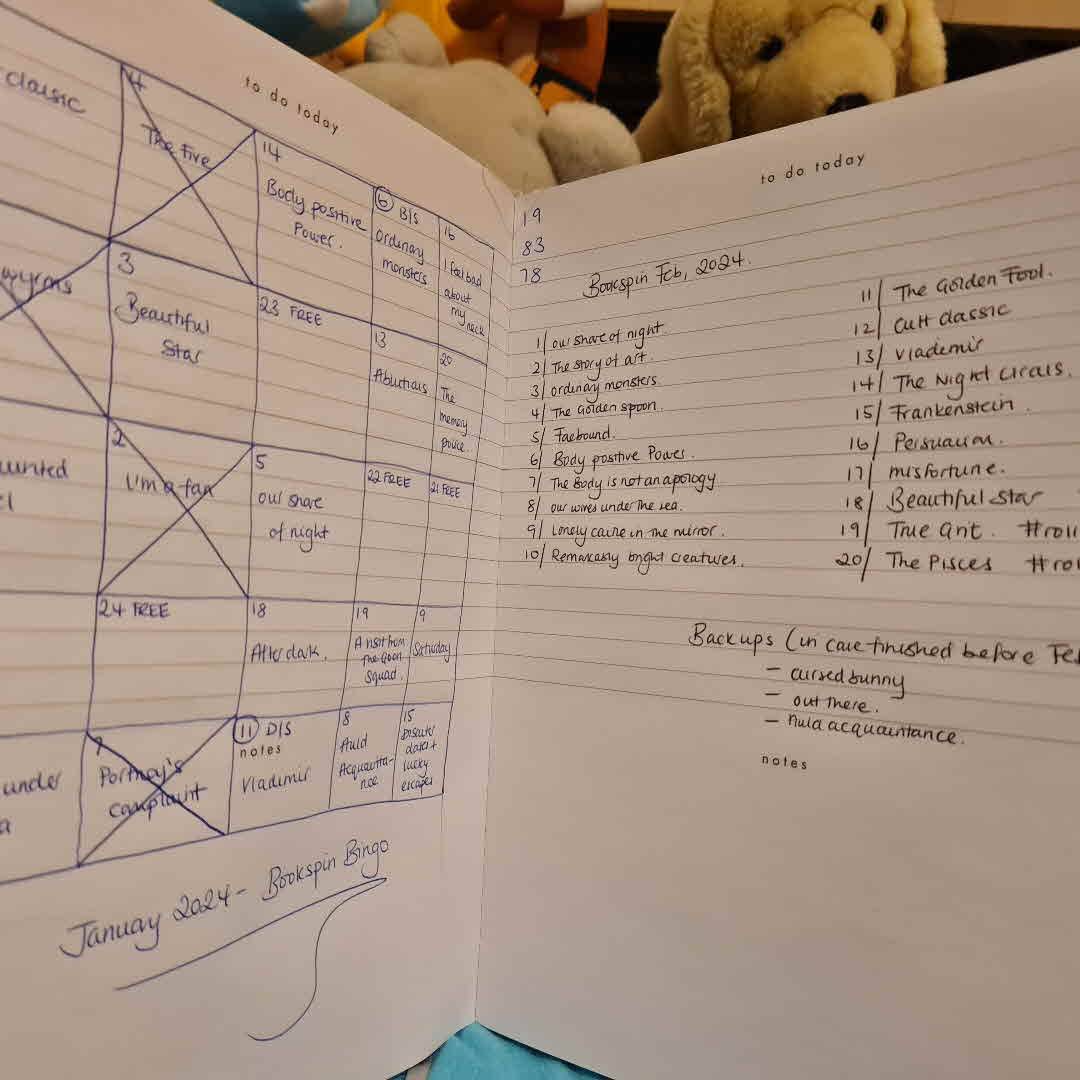 to do today
classic
4
The Five
14
Body positive
Power.
6 B/S
ordinary
monsters
16
I feel bad
about
my neck
wyrms
3
Beautiful
Star
23 FREE
13
Abunhais
20
The
memory
police.
2
I'm a fan
5
our share
of night
22 FREE
21 FREE
24 FREE
18
After dark.
19
A visit from
The Goon
Squad.
9
Saturday
under
a
7
Portnoy's
complaint
11 D/S
notes
Vladimir
8
Auld
Acquainta-
nce
15
Disaster
data +
lucky
escapes
January 2024 - Bookspin Bingo
to do today
19
83
78
Bookspin Feb, 2024.
1/ our share of night
2/ The story of art.
3/ ordinary monsters.
4/ The Golden spoon.
5/ Faebound.
6/ Body positive Power.
7/ The Body is not an apology
8/ our wives under the sea.
9/ Lonely castle in the mirror.
10/ Remarkasly bright creatures.
11/ The Golden Fool.
12/ Cult classic
13/ Vlademir
14/ The Night circus.
15/ Frankenstein.
16/ Persuasion.
17/ misfortune.
18/ Beautiful star
19/ True Ant. #roll
20/ The Pisces #rol
Backups (in case finished before Feb
- cursed bunny
- out there.
- Auld acquaintance.
notes